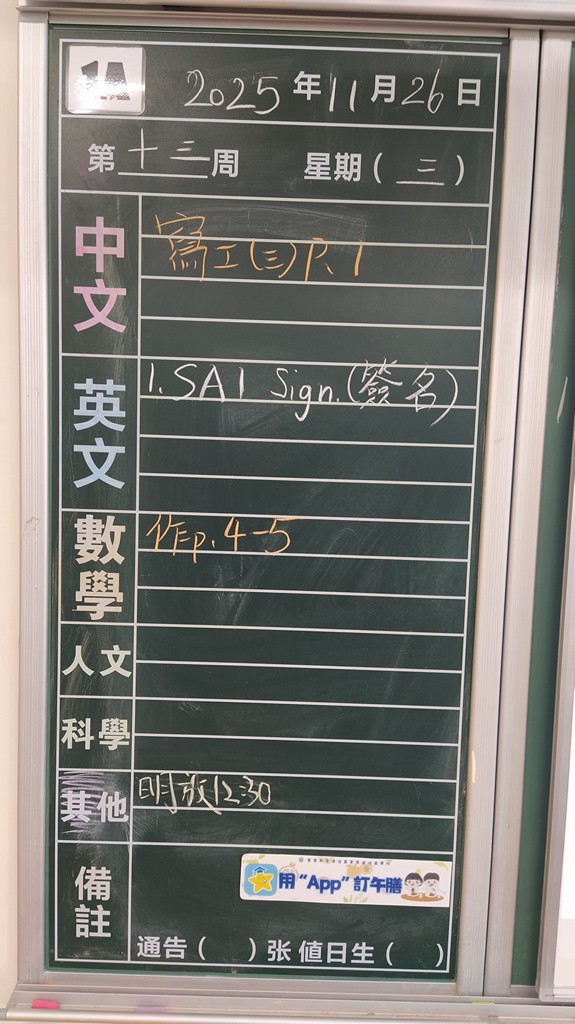 1A
2025年11月26日
第十三周 星期(三)
中文
寫工(三)P.1
英文
1.SA1 Sign.(簽名)
數學
作p.4-5
人文
科學
其他
明放12:30
備註
用“App”訂午膳
通告( )张 值日生( )